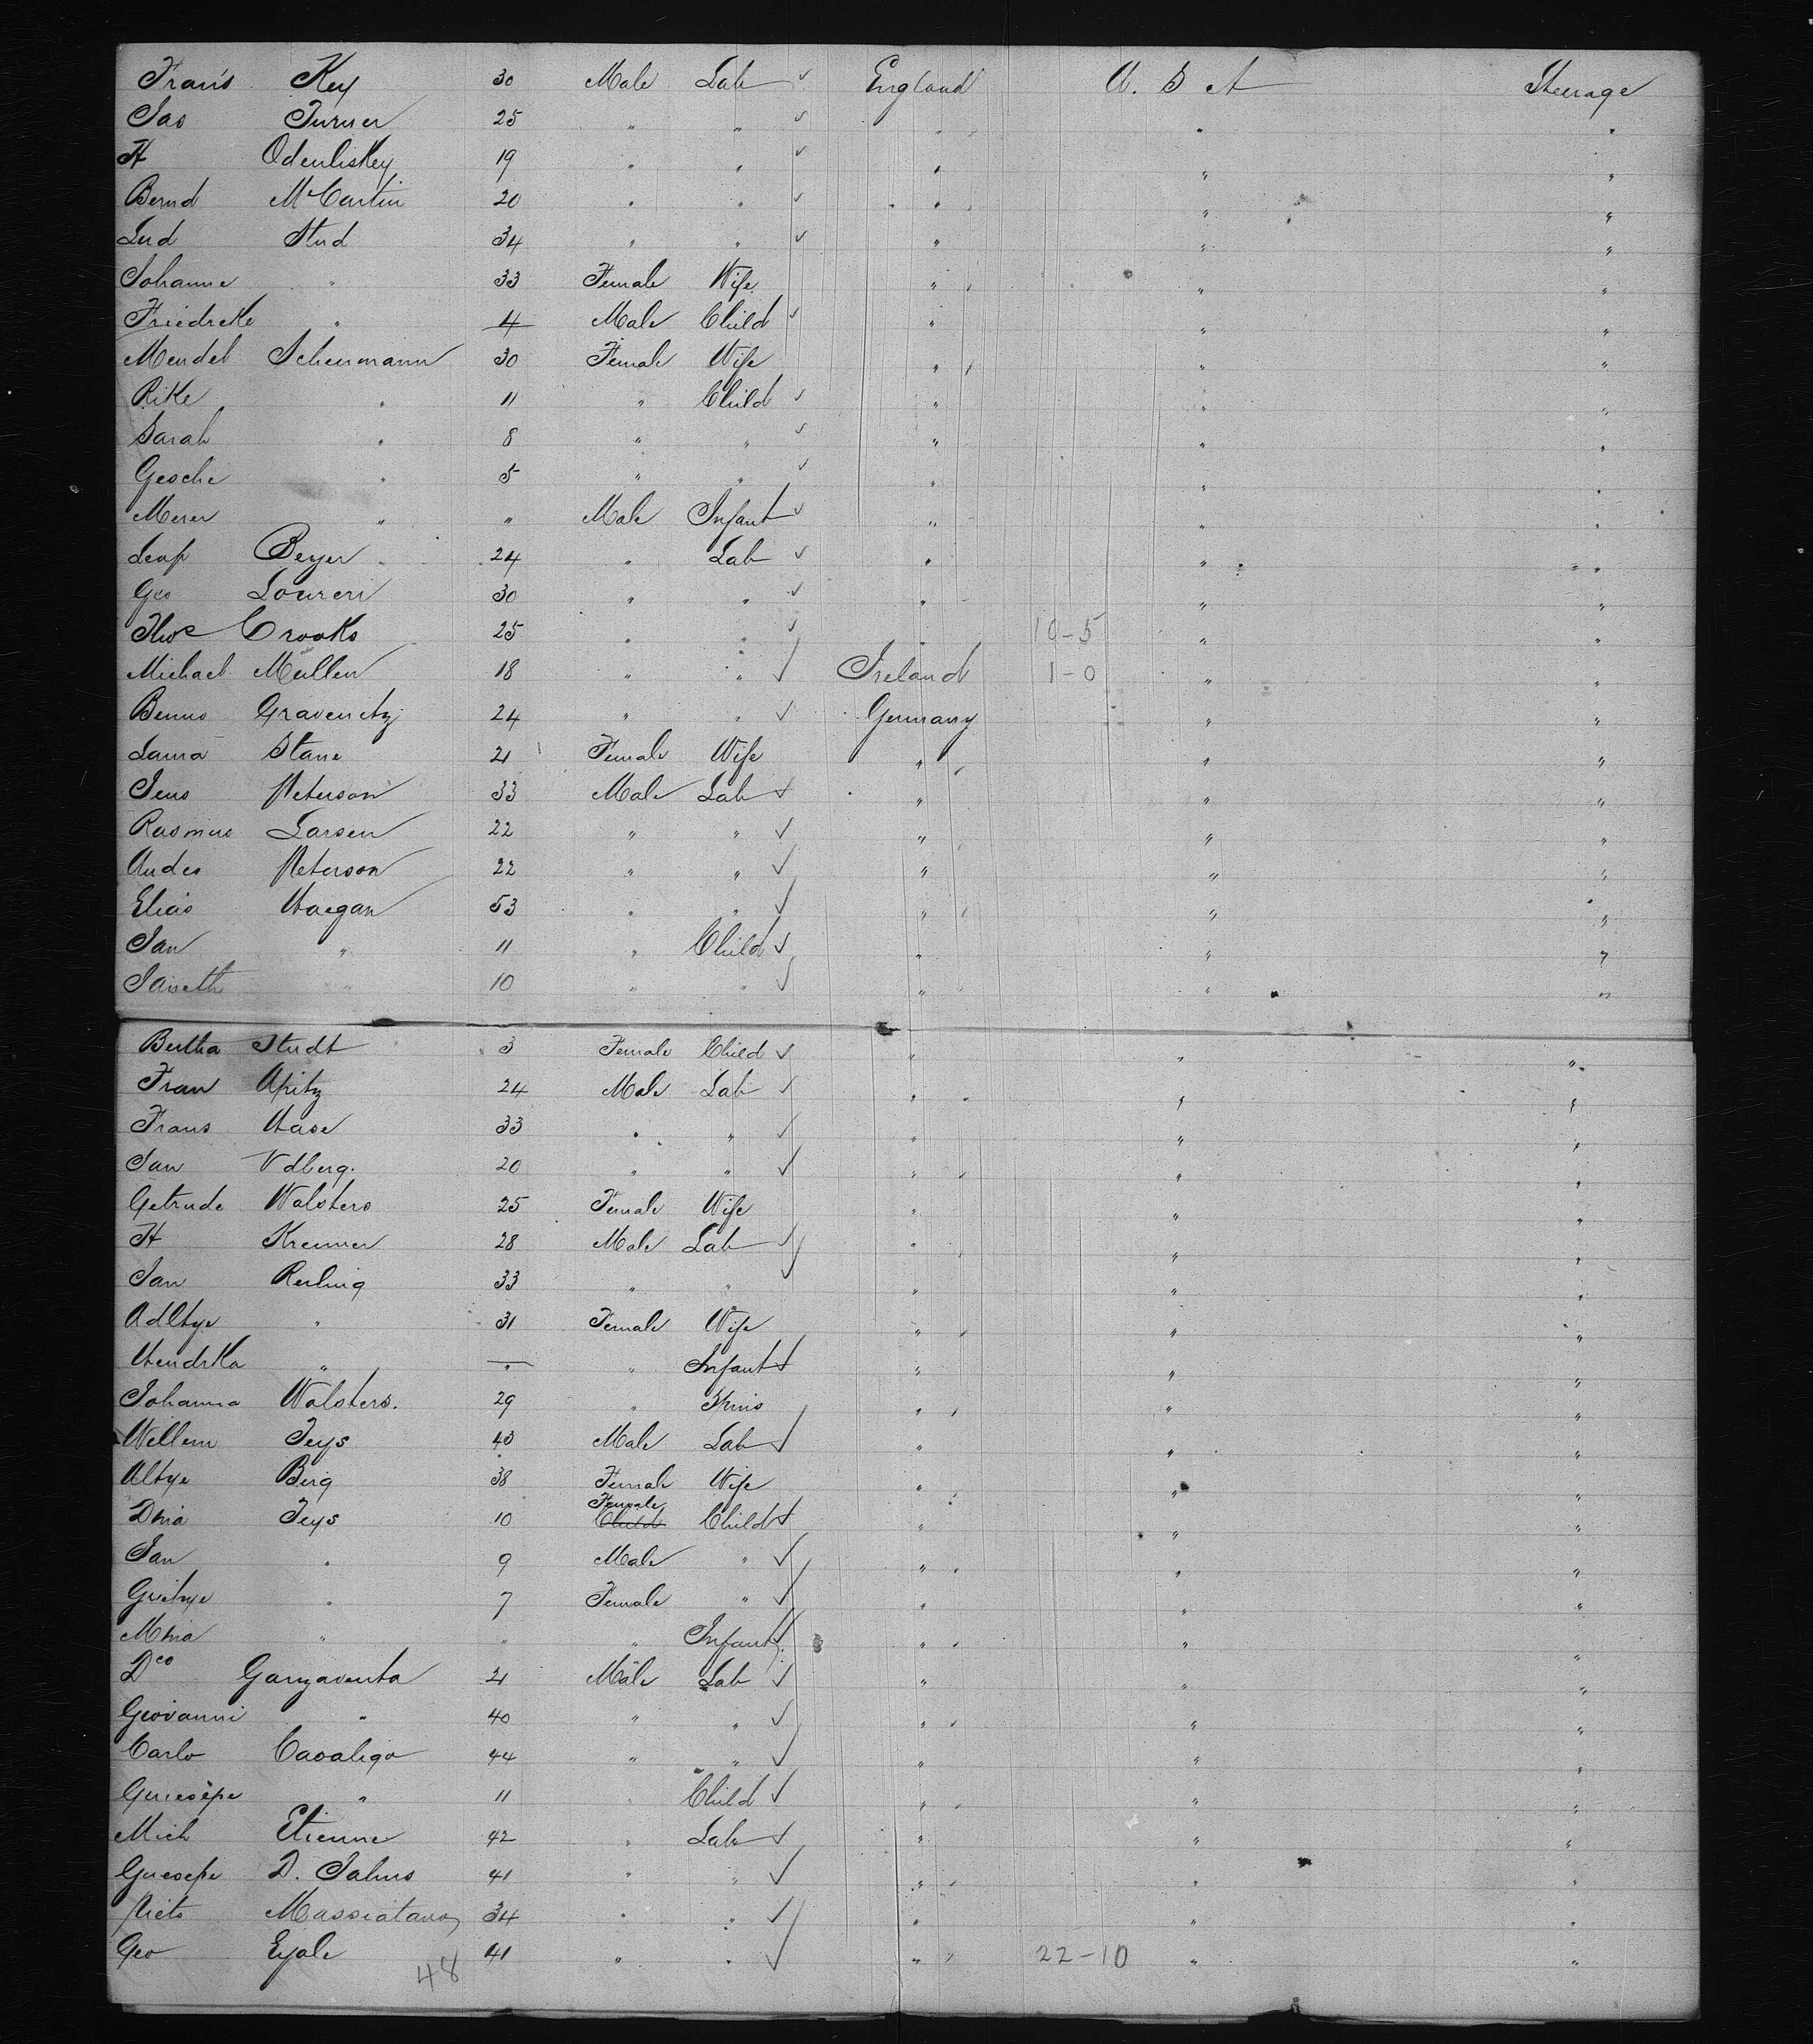 Frans Key 30 Male Lab ✓ England U. S A Steerage
Jas Turner 25 " " ✓ " " "
H Odenliskey 19 " " ✓ " " "
Bernd McCartin 20 " " ✓ " " "
Lud Stud 34 " " ✓ " " "
Johanne " 33 Female Wife " " "
Friedreke " 4 Male Child ✓ " " "
Mendel Scheumann 30 Female Wife " " "
Rike " 11 " Child ✓ " " "
Sarah " 8 " " ✓ " " "
Gesche " 5 " " ✓ " " "
Merer " " Male Infant ✓ " " "
Leop Beyer 24 " Lab ✓ " " "
Geo Loureri 30 " " ✓ " " "
Thos Crooks 25 " " ✓ " 10-5 " "
Michael Mullen 18 " " ✓ Ireland 1-0 " "
Benno Gravenitz 24 " " ✓ Germany " "
Laura Stane 21 Female Wife " " "
Jens Peterson 33 Male Lab ✓ " " "
Rasmus Larsen 22 " " ✓ " " "
Andes Peterson 22 " " ✓ " " "
Elias Haegan 53 " " ✓ " " "
Jan " 11 " Child ✓ " " "
Janeth " 10 " " ✓ " " "
Bertha Studt 3 Female Child ✓ " " "
Fran Apitz 24 Male Lab ✓ " " "
Frans Hase 33 " " ✓ " " "
Jan Vdberg. 20 " " ✓ " " "
Getrude Walsters 25 Female Wife " " "
H Kremer 28 Male Lab ✓ " " "
Jan Reiling 33 " " ✓ " " "
Adltye " 31 Female Wife " " "
Hendrka " " " Infant ✓ " " "
Johanna Walsters. 29 " Spins " " "
Willem Teys 40 Male Lab ✓ " " "
Altye Berg 38 Female Wife " " "
Dina Teys 10 Female Child Child ✓ " " "
Jan " 9 Male " ✓ " " "
Grietye " 7 Female " ✓ " " "
Mina " " " Infant ✓ " " "
Dco Garzaventa 21 Male Lab ✓ " " "
Giovanni " 40 " " ✓ " " "
Carlo Casaligo 44 " " ✓ " " "
Guiesepe " 11 " Child ✓ " " "
Mich Etienne 42 " Lab ✓ " " "
Guesepe D. Salius 41 " " ✓ " " "
Pieto Massiatano 34 " " ✓ " " "
Geo Eyale 41 " " ✓ " 22-10 " "
48